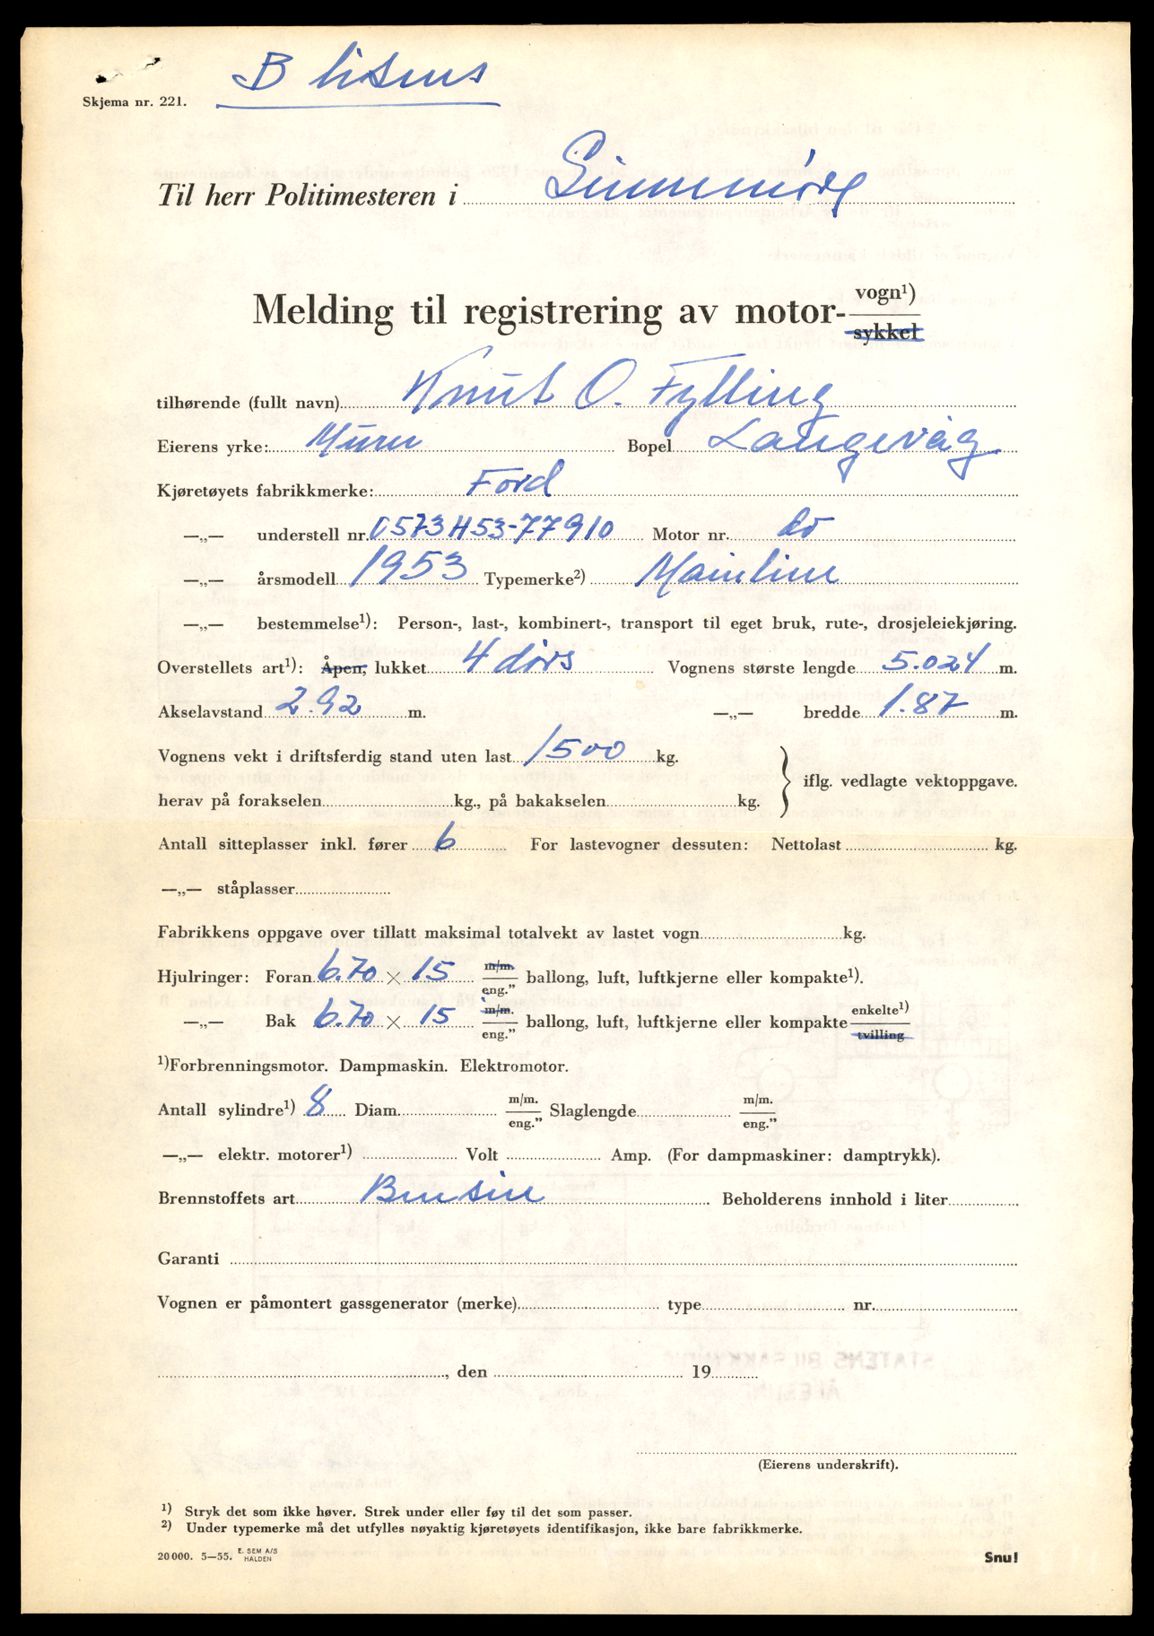 B lisens
Skjema nr. 221.
Til herr Politimesteren i Sunnmøre
Melding til registrering av motor- vogn¹)
sykkel
tilhørende (fullt navn) Knut O. Fylling
Eierens yrke: Murer Bopel Langevåg
Kjøretøyets fabrikkmerke: Ford
—„— understell nr. C573H53-77910 Motor nr. do
—„— årsmodell 1953 Typemerke²) Mainline
—„— bestemmelse¹): Person-, last-, kombinert-, transport til eget bruk, rute-, drosjeleiekjøring.
Overstellets art¹): Åpen, lukket 4 dørs Vognens største lengde 5.024 m.
Akselavstand 2.92 m. —„— bredde 1.87 m.
Vognens vekt i driftsferdig stand uten last 1500 kg.
iflg. vedlagte vektoppgave.
herav på forakselen kg., på bakakselen kg.
Antall sitteplasser inkl. fører 6 For lastevogner dessuten: Nettolast kg.
—„— ståplasser
Fabrikkens oppgave over tillatt maksimal totalvekt av lastet vogn kg.
Hjulringer: Foran 6.70 × 15 m/m. eng." ballong, luft, luftkjerne eller kompakte¹).
—„— Bak 6.70 × 15 m/m. eng." ballong, luft, luftkjerne eller kompakte enkelte¹) tvilling
¹)Forbrenningsmotor. Dampmaskin. Elektromotor.
Antall sylindre¹) 8 Diam. m/m. eng." Slaglengde m/m. eng."
—„— elektr. motorer¹) Volt Amp. (For dampmaskiner: damptrykk).
Brennstoffets art Bensin Beholderens innhold i liter
Garanti
Vognen er påmontert gassgenerator (merke) type nr.
, den 19
(Eierens underskrift).
¹) Stryk det som ikke høver. Strek under eller føy til det som passer.
²) Under typemerke må det utfylles nøyaktig kjøretøyets identifikasjon, ikke bare fabrikkmerke.
20 000. 5—55. E. SEM A/S HALDEN
Snu!